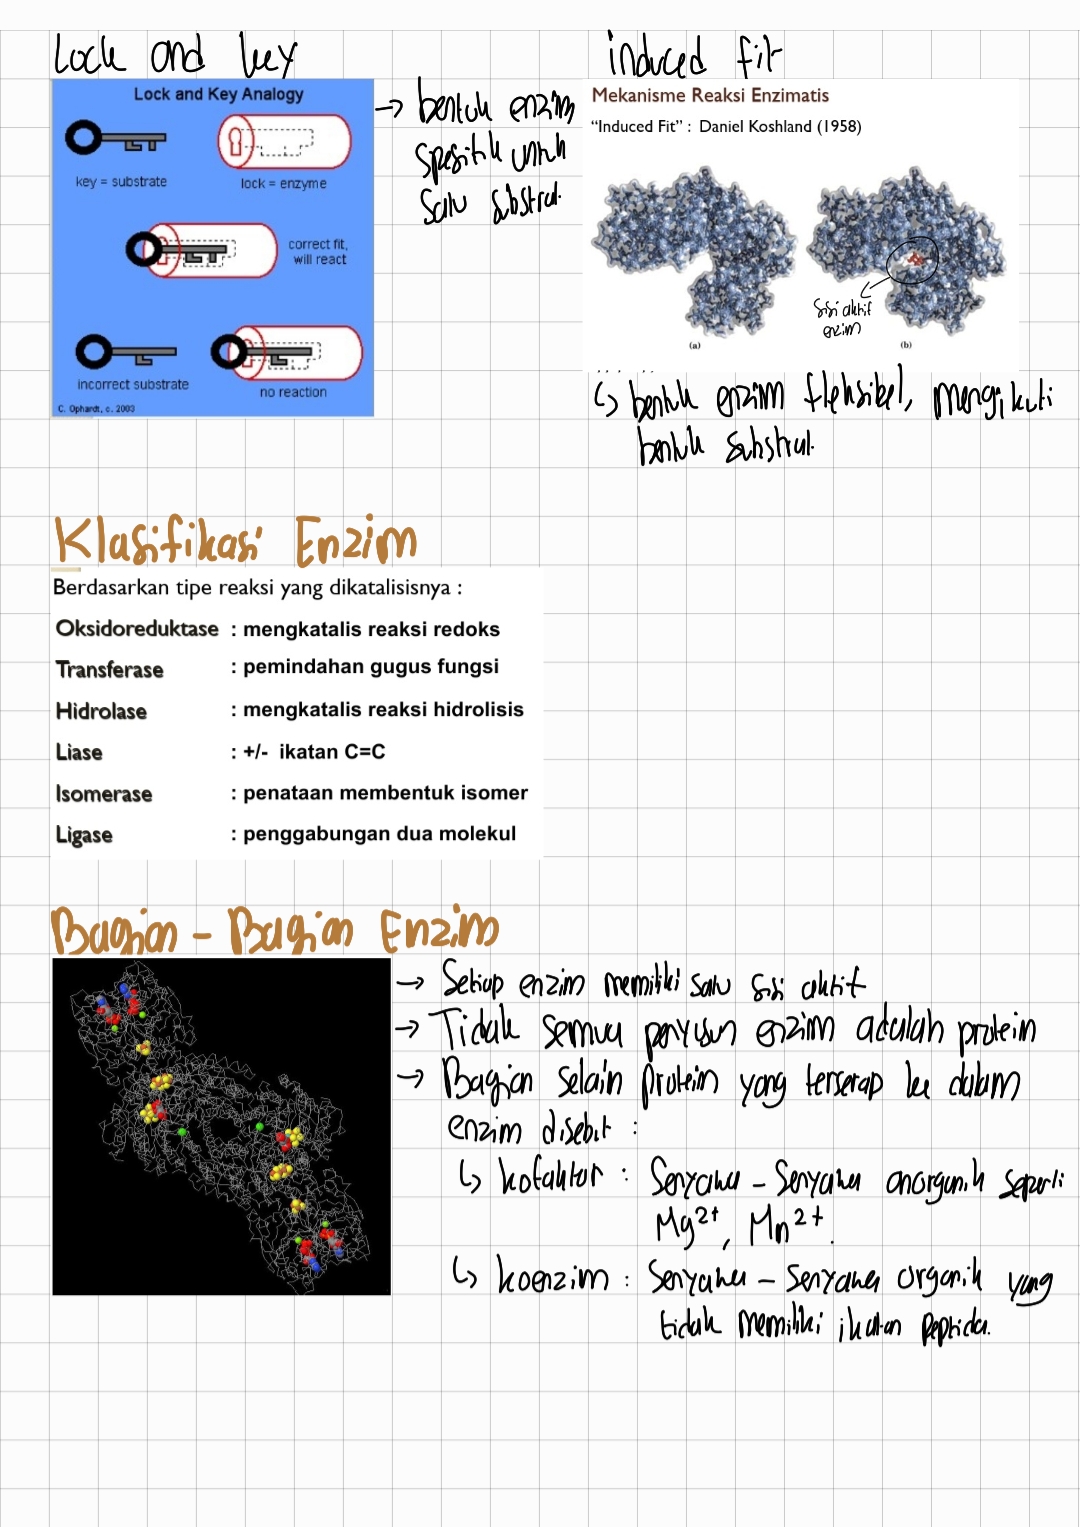 Lock and key
Lock and Key Analogy
key = substrate
lock = enzyme
correct fit,
will react
incorrect substrate
no reaction
C. Ophardt, c. 2003
→ bentuk enzim
spesifik untuk
satu substrat.
induced fit
Mekanisme Reaksi Enzimatis
“Induced Fit” : Daniel Koshland (1958)
sisi aktif
enzim
(a)
(b)
↳ bentuk enzim fleksibel, mengikuti
bentuk substrat.
Klasifikasi Enzim
Berdasarkan tipe reaksi yang dikatalisisnya :
Oksidoreduktase : mengkatalis reaksi redoks
Transferase : pemindahan gugus fungsi
Hidrolase : mengkatalis reaksi hidrolisis
Liase : +/- ikatan C=C
Isomerase : penataan membentuk isomer
Ligase : penggabungan dua molekul
Bagian - Bagian Enzim
→ Setiap enzim memiliki satu sisi aktif
→ Tidak semua penyusun enzim adalah protein
→ Bagian selain protein yang terserap ke dalam
enzim disebut :
↳ kofaktor : Senyawa - Senyawa anorganik seperti
Mg²⁺, Mn²⁺.
↳ koenzim : Senyawa - Senyawa organik yang
tidak memiliki ikatan peptida.